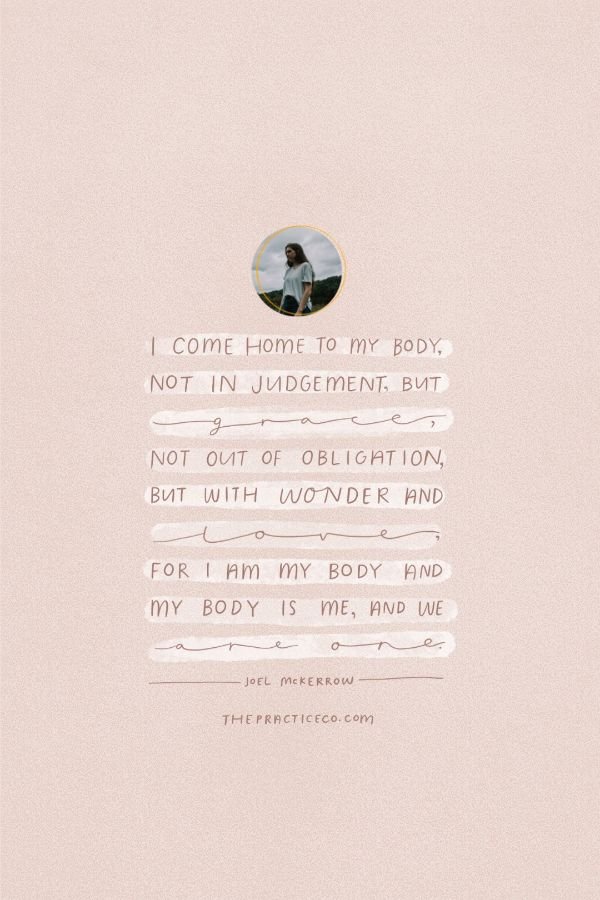 I COME HOME TO MY BODY,
NOT IN JUDGEMENT, BUT
grace,
NOT OUT OF OBLIGATION,
BUT WITH WONDER AND
love,
FOR I AM MY BODY AND
MY BODY IS ME, AND WE
are one.
JOEL McKERROW
THEPRACTICECO.COM